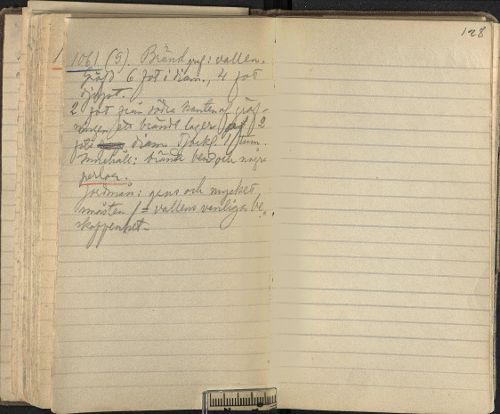 128
1061 (S). Brandgraf i vallen.
gräfd 6 fot i diam., 4 fot
djupt.
2 fot från södra kanten af gräf-
ningen ett brändt lager af 2
fots diam. tjockl. 1 tum.
Innehåll: brända ben och några
perlor.
Jordmån: grus och mycket
mösten (= vallens vanliga be-
skaffenhet.